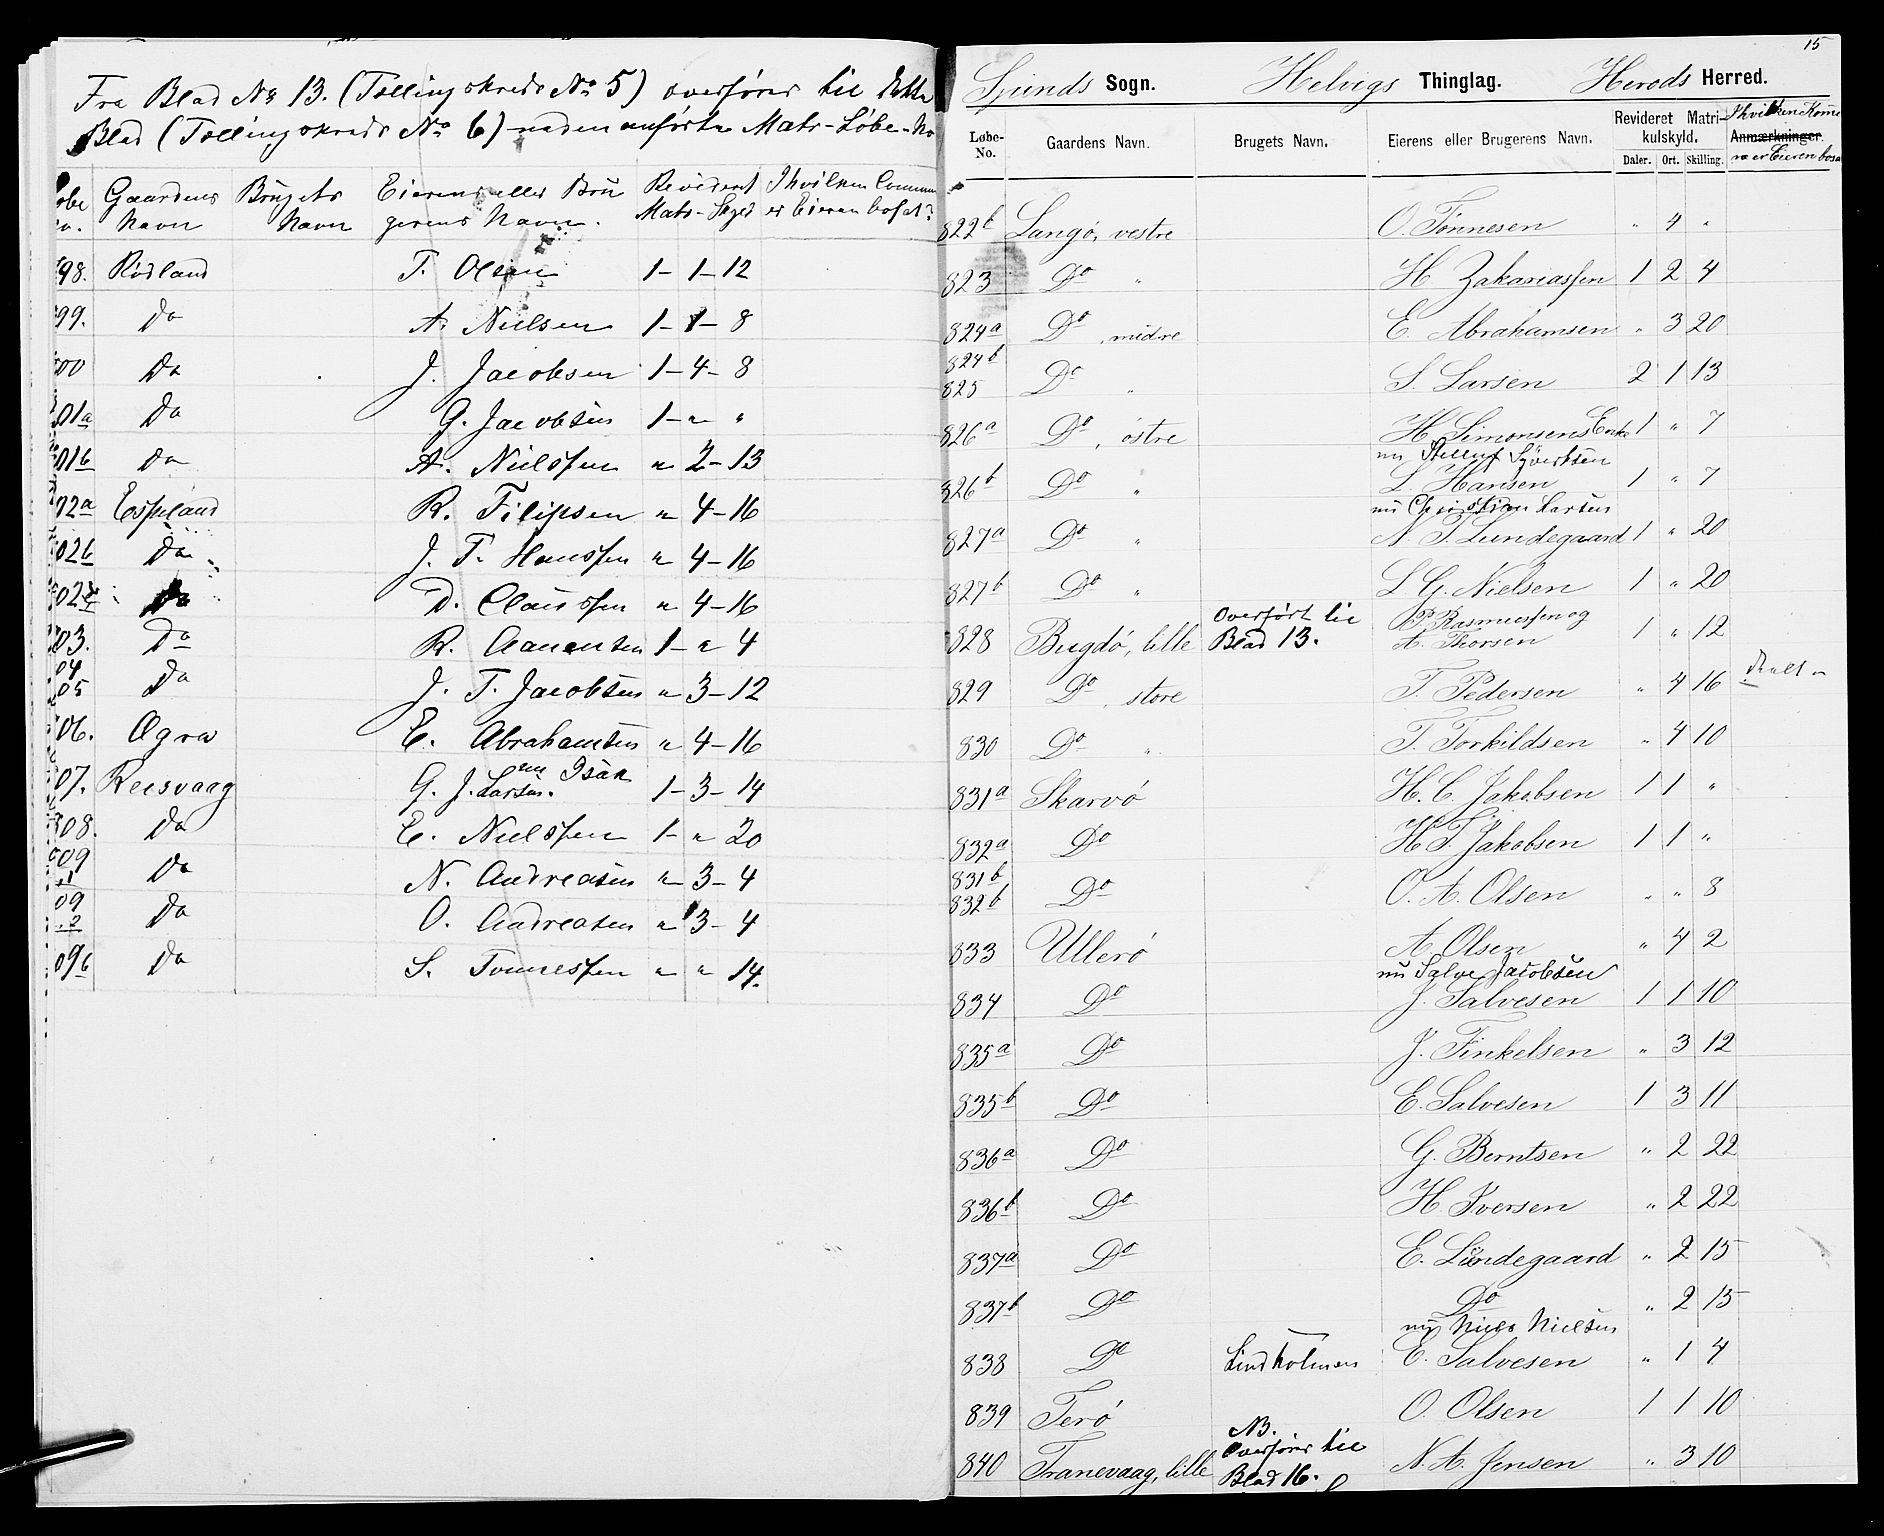 Fra Blad No 13. (Tællingskreds No 5) overføres til dette
Blad (Tællingskreds No 6) nedenanførte Matr-Løbe-No
Gaardens Navn Brugets Navn Eierens eller Brugerens Navn. Revideret Matr-Skyld I hvilken Commune er Eieren bosat?
98. Rødland T. Olsen 1 - 1 - 12
99. Do A. Nielsen 1 - 1 - 8
00 Do J. Jacobsen 1 - 4 - 8
01a Do G. Jacobsen 1 - " "
01b Do A. Nielssen " 2 - 13
02a Espeland R. Filipsen " 4 - 16
02b Do J. T. Hanssen " 4 - 16
02c Do D. Claussen " 4 - 16
03. Do R. Aanensen 1 - " 4
04
05 Do J. T. Jacobsen " 3 - 12
06. Øgra E. Abrahamsen " 4 - 16
07. Reesvaag G. J. Larsen. nu Isak 1 - 3 - 14
808. Do E. Nielssen 1 - " 20
09.1 Do N. Andreasen " 3 - 4
09.2 Do O. Andreasen " 3 - 4
09b Do S. Tønnessen " " 14.
15
Spinds Sogn. Helvigs Thinglag. Herods Herred.
Løbe-No. Gaardens Navn. Brugets Navn. Eierens eller Brugerens Navn. Revideret Matrikulskyld. Daler. Ort. Skilling. Anmærkninger. I hvilken Komme er Eieren bosa
822b Langø, vestre O. Tønnesen " 4 "
823 Do " H Zakariassen 1 2 4
824a Do , midre E. Abrahamsen " 3 20
824b
825 Do " S. Larsen 2 1 13
826a Do , østre H. Simonsens Enke 1 " 7
nu Sjvertsen
826b Do " L Hansen 1 " 7
nu Christian Larsen
827a Do " N. T. Lundegaard 1 " 20
827b Do " L G. Nielsen 1 " 20
828 Bugdø, lille Overført til Blad 13. P. Rasmussen og A. Thorsen 1 " 12
829 Do , store T. Pedersen " 4 16
830 Do " T. Torkildsen " 4 10
831a Skarvø H. C. Jakobsen 1 1 "
832a Do H T. Jakobsen 1 1 "
831b
832b Do O. A. Olsen " " 8
833 Ullerø A. Olsen " 4 2
nu Salve Jacobsen
834 Do J. Salvesen 1 1 10
835a Do J. Finkelsen " 3 12
835b Do E. Salvesen 1 3 11
836a Do G. Berntsen " 2 22
836b Do H. Iversen " 2 22
837a Do E. Lundegaard " 2 15
837b Do Do " 2 15
nu Niels Nielsen
838 Do Lindholmen E. Salvesen " 1 4
839 Terø O. Olsen 1 1 10
840 Tranevaag, lille NB. Overføres til Blad 16. N. A. Jensen " 3 10